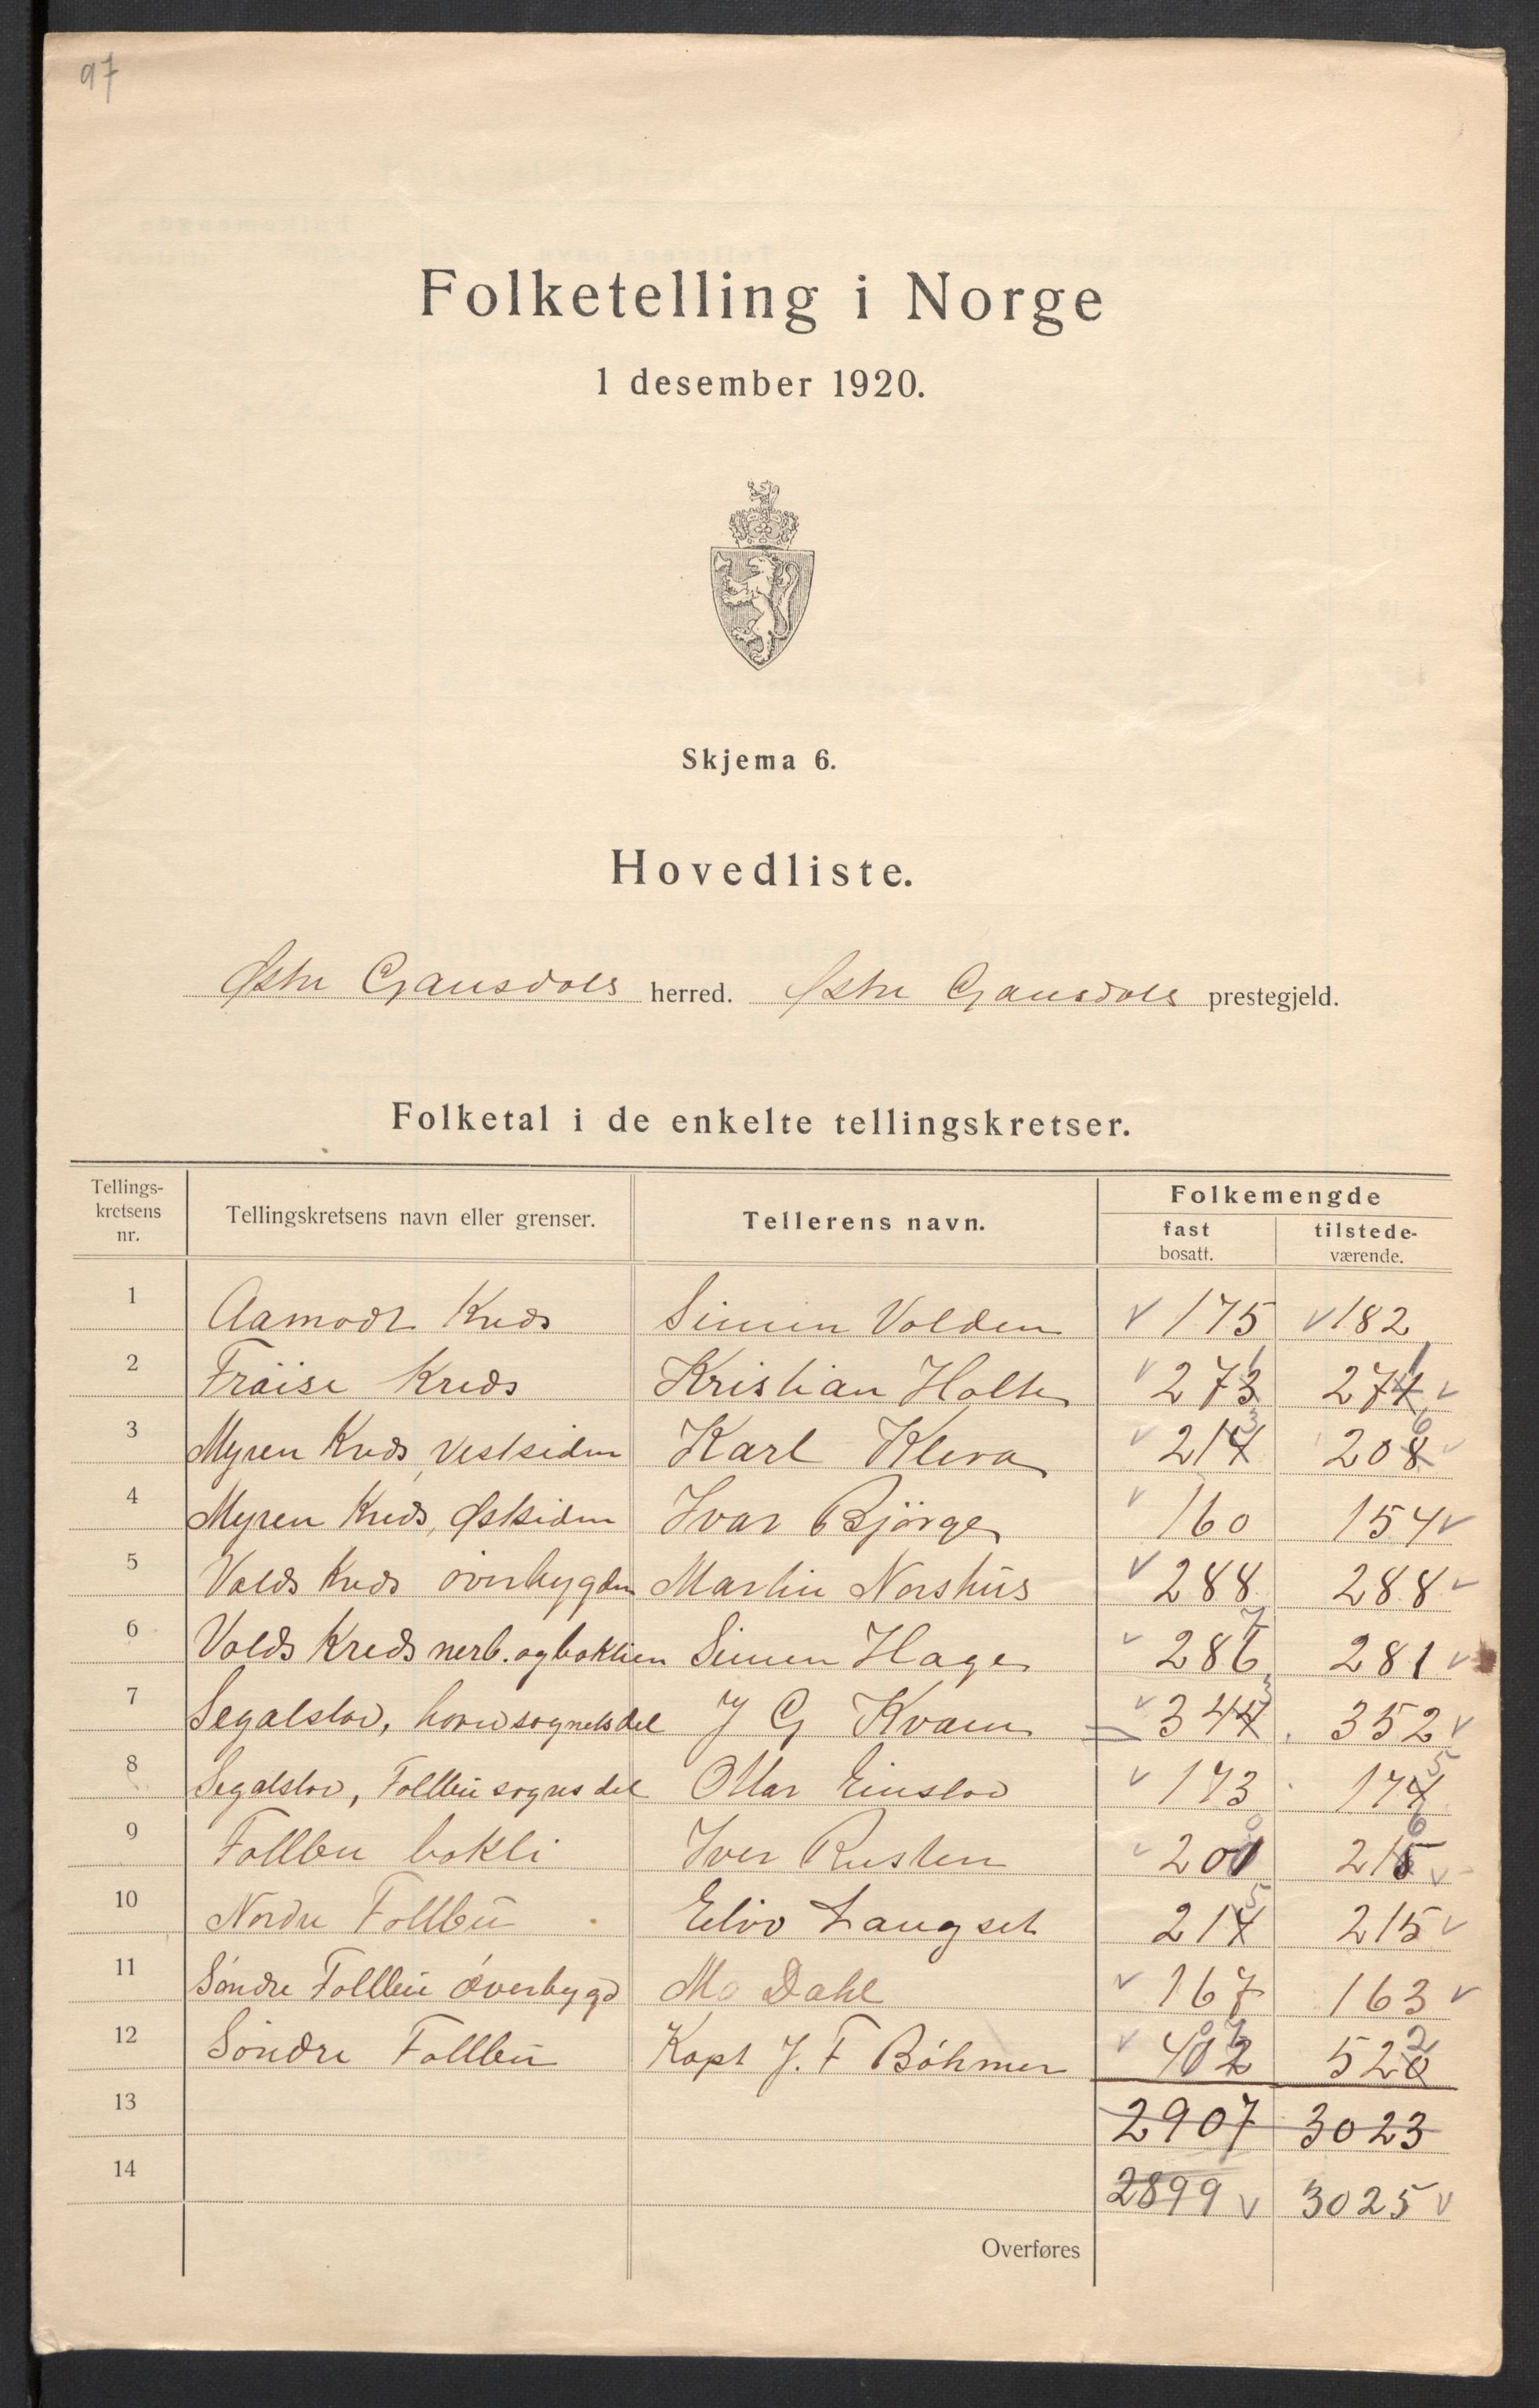 97
Folketelling i Norge
1 desember 1920.
Skjema 6.
Hovedliste.
Østre Gausdals herred. Østre Gausdals prestegjeld.
Folketal i de enkelte tellingskretser.
Tellings-kretsens nr. Tellingskretsens navn eller grenser. Tellerens navn. Folkemengde
fast bosatt. tilstede-værende.
1 Aamodt Kreds Simen Volden 175 182
2 Fröise Kreds Kristian Holte 273 1 274 1
3 Myren Kreds, Vestsiden Karl Kleva 214 3 208 6
4 Myren Kreds, Østsiden Ivar Bjørge 160 154
5 Volds Kreds overbygden Martin Norshus 288 288
6 Volds Kreds nerb. og baklien Simen Hage 286 7 281
7 Segalstad, hovedsognets del J G Kvam 344 3 352
8 Segalstad, Follbu sogns del Ottar Einstad 173 174 5
9 Follbu bakli Iver Rusten 201 0 215 6
10 Nordre Follbu Eliv Langset 214 5 215
11 Søndre Follbu överbygd M. Dahl 167 163
12 Søndre Follbu Kapt J. F Bøhmer 412 07 520 2
13 2907 3023
14 2899 3025
Overføres